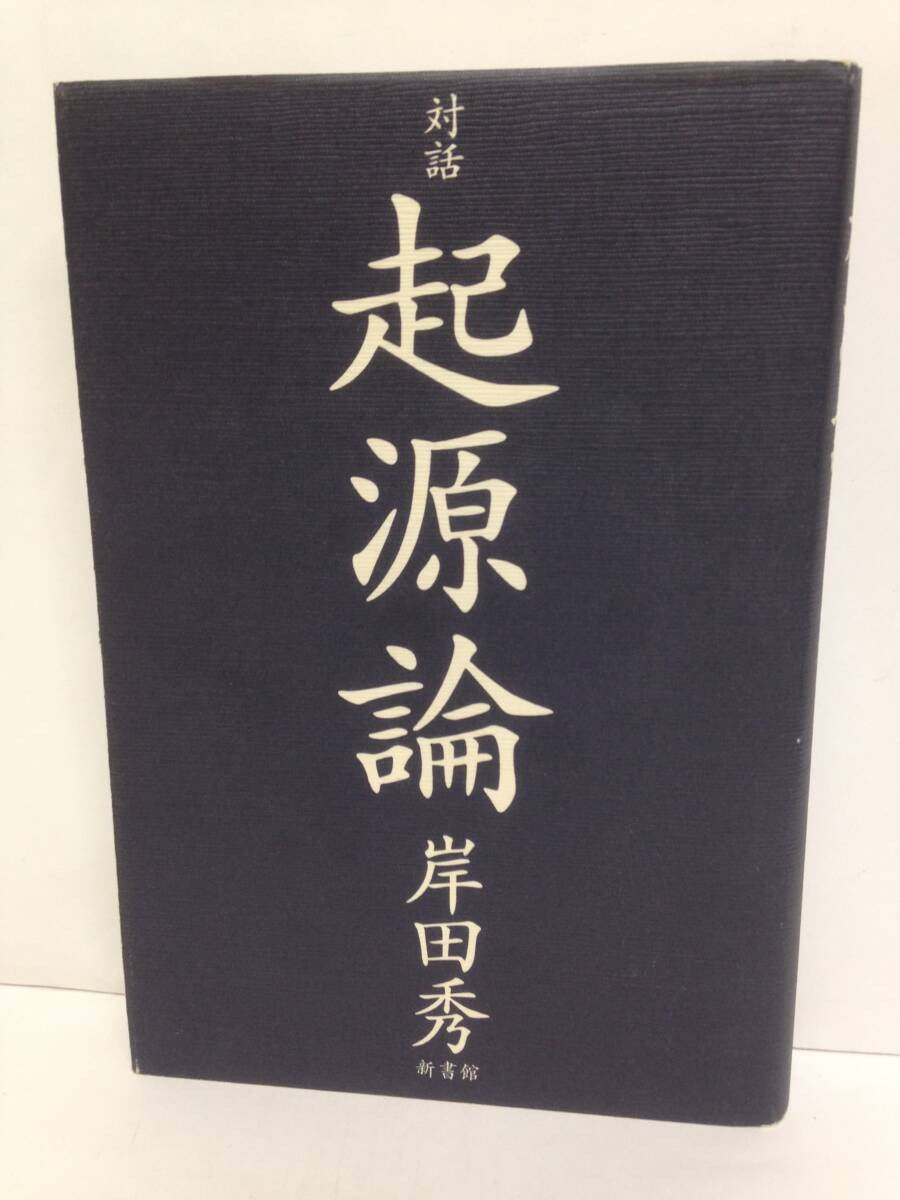 対話
起源論
岸田秀
新書館